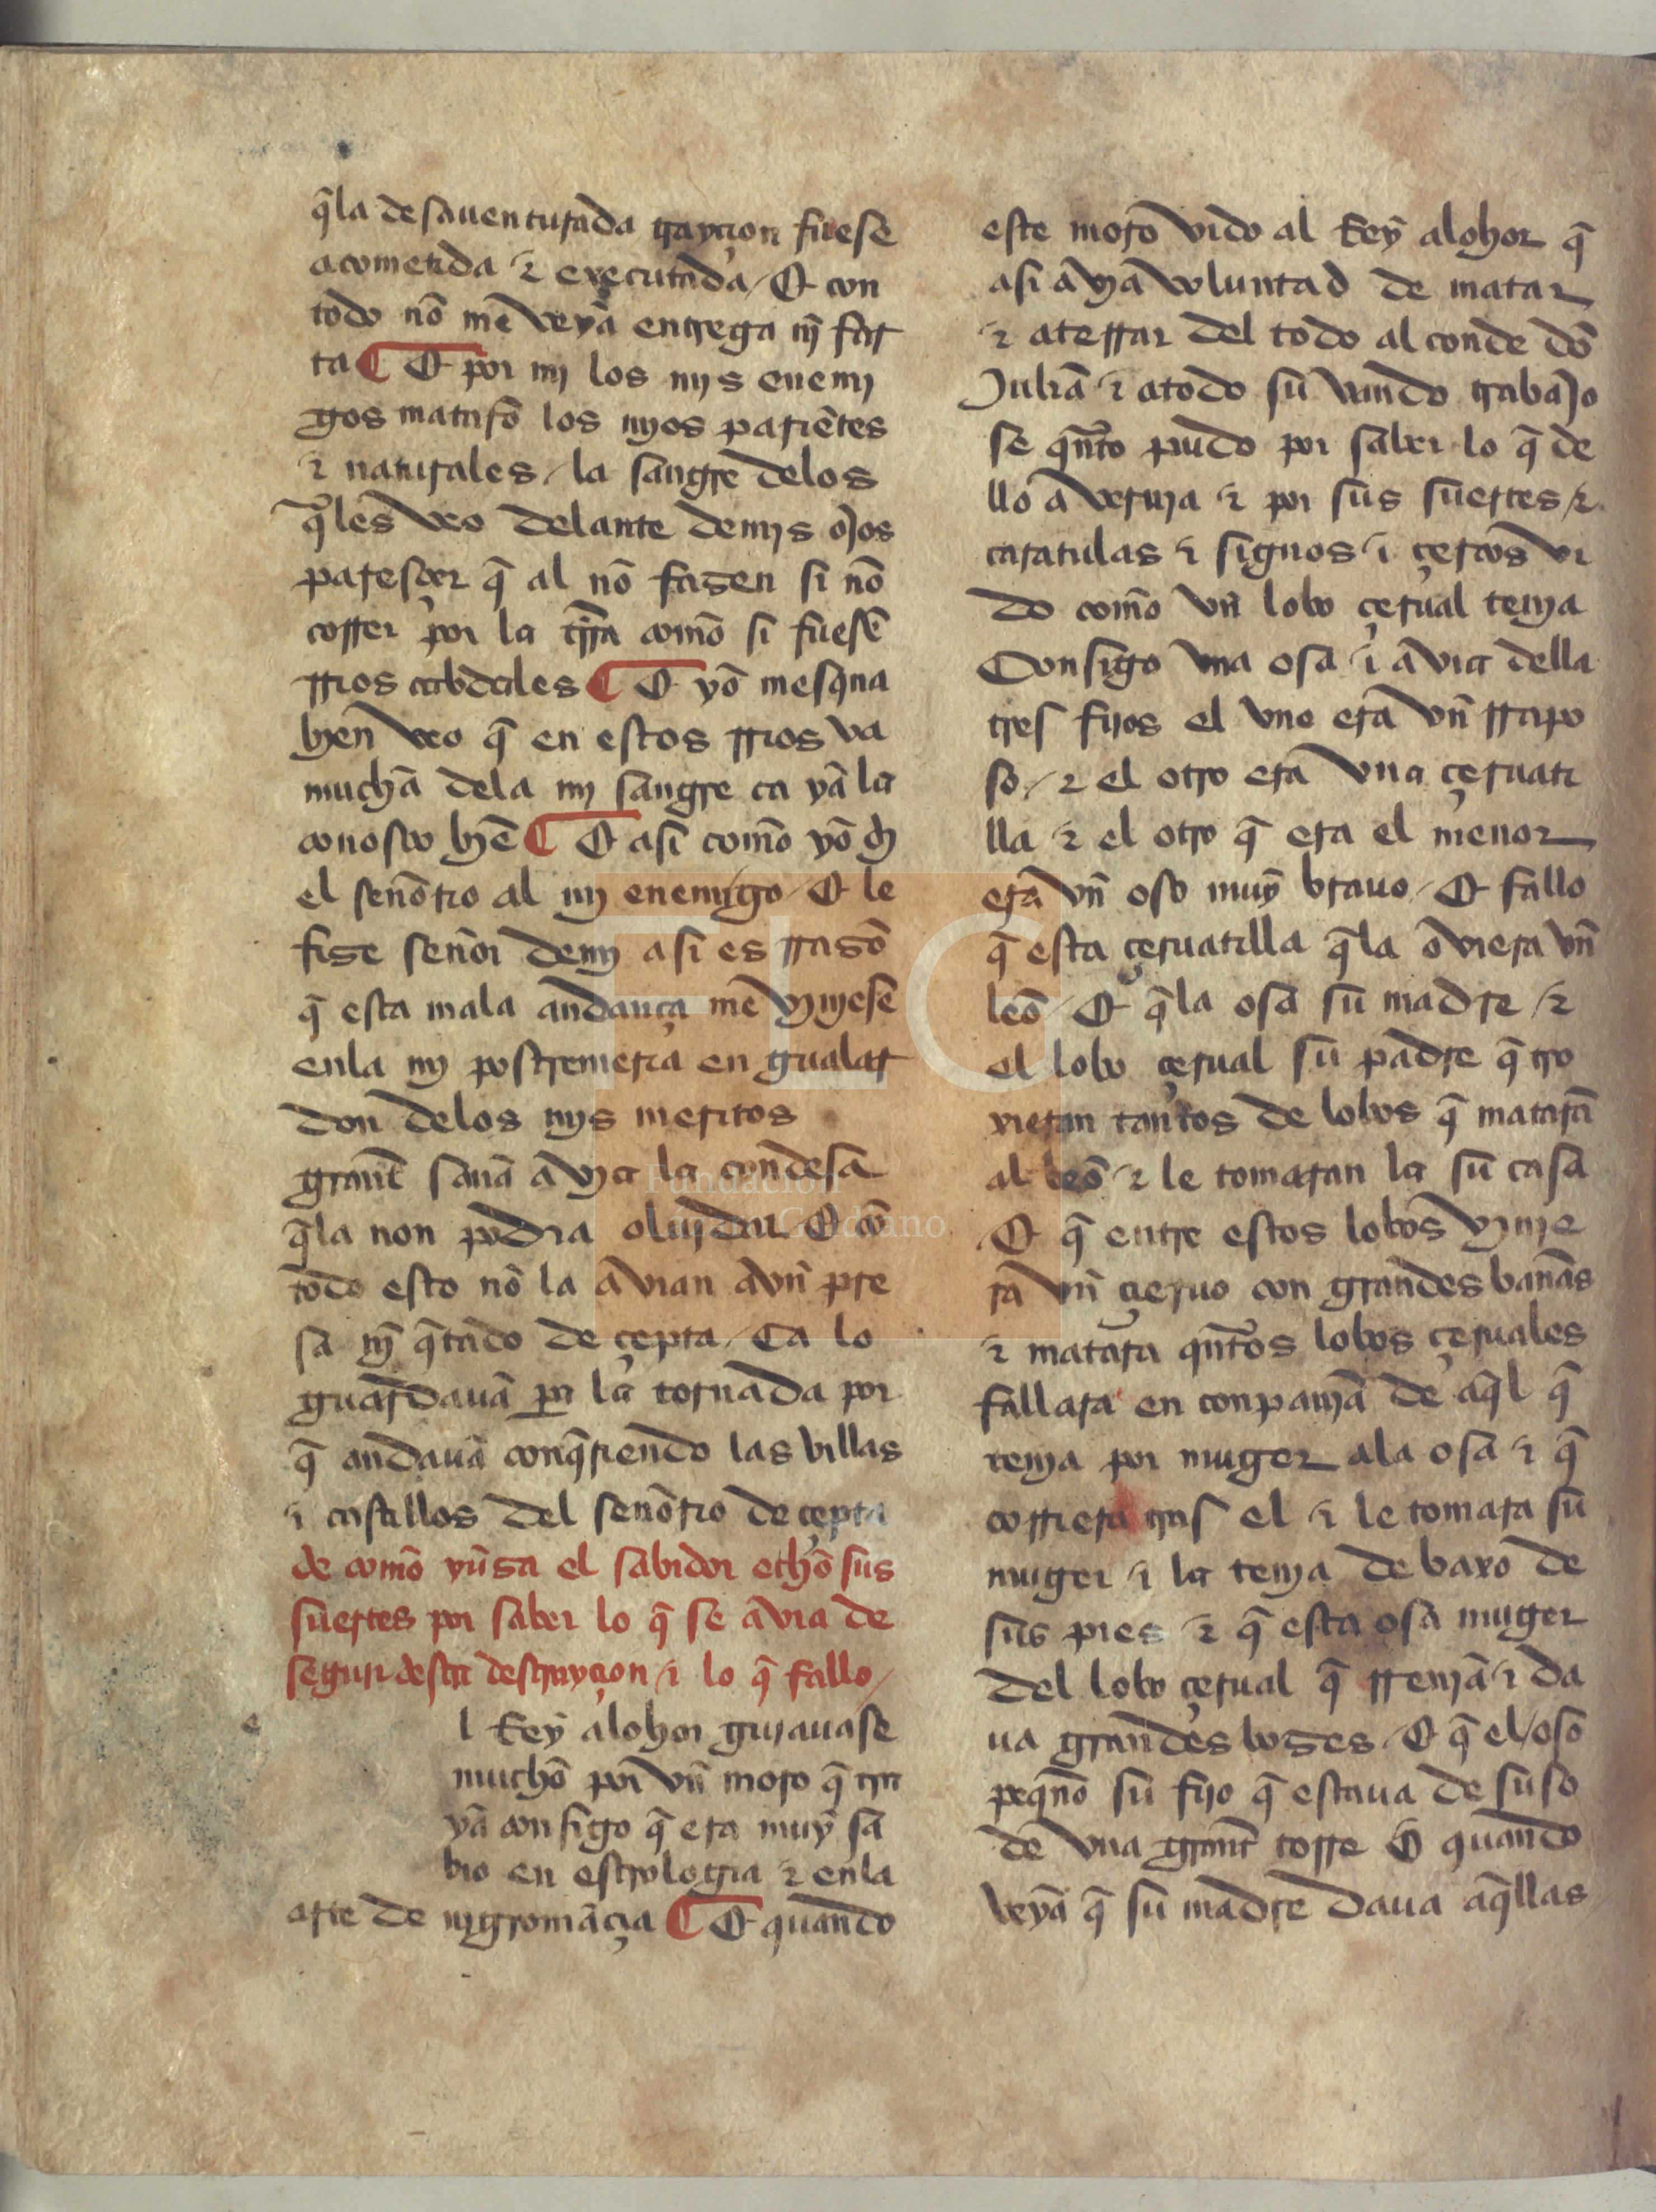 q̃la desauenturada trayçion fuese
acometida ⁊ executada / Et con
todo nõ me veyã entrega nj̃ far
ta ¶ Et por mj los mjs enemj
gos matarõ los mjos pariẽtes
⁊ naturales / la sangre delos
q̃les veo delante demjs ojos
paresçer q̃ al nõ fasen si nõ
correr por la trr̃a comõ si fuesẽ
rrios cabdales ¶ Et yõ mesq̃na
bien veo q̃ en estos rrios va
muchã dela mj sangre ca yã la
conosco bjẽ ¶ Et asi comõ yõ dj
el señorio al mj enemigo / Et le
fise señor demj asi es rrasõ
q̃ esta mala andança me vjnjese
enla mj postremeria en gualar
don delos mjs meritos
grant sañã avja la condesa
q̃la non podria oluidar Et cõ
todo esto nõ la avian avñ pre
sa nj̃ q̃tado de çepta / Ca lo
guardauã pa la tornada por
q̃ andauã conq̃riendo las villas
⁊ castillos del señorio de çepta
de comõ yuṡa el sabidor echõ sus
suertes por saber lo q̃ se avia de
segujr desta destruyçion / ⁊ lo q̃ fallo /
e
l Rey alohor guiauase
muchõ por vñ moro q̃ tra
yã consigo q̃ era muy sa
bio en estrologia ⁊ enla
arte de njgromãçia ¶ Et quando
este moro vido al Rey alohor q̃
asi avjã voluntad de matar
⁊ aterrar del todo al conde dõ
Juliã ⁊ atodo su vando trabajo
se qñto pudo por saber lo q̃ de
llo averrja ⁊ por sus suertes / ⁊
caratulas ⁊ signos ⁊ çercos vi
do comõ vñ lobo çerual tenja
Consigo vna osa ⁊ avia della
tres fijos el vno era vñ rrapo
so / ⁊ el otro era vna çeruati
lla ⁊ el otro q̃ era el menor
erã vñ oso muy brauo / Et fallo
q̃ esta çeruatilla q̃la oviera vñ
leõ / Et q̃la osa su madre / ⁊
el lobo çerual su padre q̃ tro
xieran tantos de lobos q̃ matarã
al leõ / ⁊ le tomaran la su casa
Et q̃ entre estos lobos vjnje
rã vñ çieruo con grandes bañas
⁊ matara qñtos lobos çeruales
fallara en conpañjã de aq̃l q̃
tenja por muger ala osa ⁊ q̃
corriera tras el ⁊ le tomara su
muger ⁊ la tenja de baxo de
sus pies ⁊ q̃ esta osa muger
del lobo çerual q̃ rrenjã ⁊ da
ua grandes boses / Et q̃ el oso
peq̃ño su fijo q̃ estaua de suso
de vna grant torre Et quando
veyã q̃ su madre daua aq̃llas